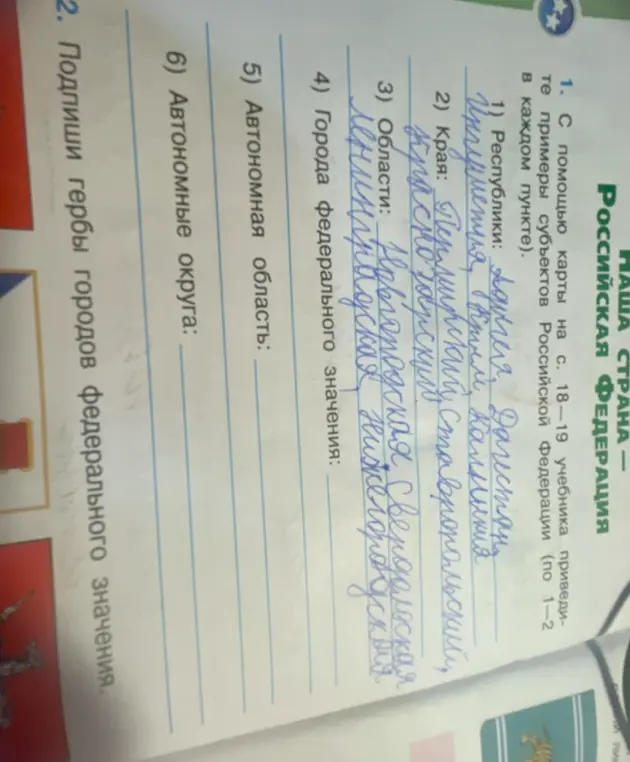 НАША СТРАНА —
РОССИЙСКАЯ ФЕДЕРАЦИЯ
1. С помощью карты на с. 18—19 учебника приведи-
те примеры субъектов Российской Федерации (по 1—2
в каждом пункте).
1) Республики: Адыгея, Дагестан,
Ингушетия, Калмыкия
2) Края: Пермский, Ставропольский,
Краснодарский
3) Области: Новгородская Свердловская
Ленинградская, Нижегородская
4) Города федерального значения:
5) Автономная область:
6) Автономные округа:
2. Подпиши гербы городов федерального значения.